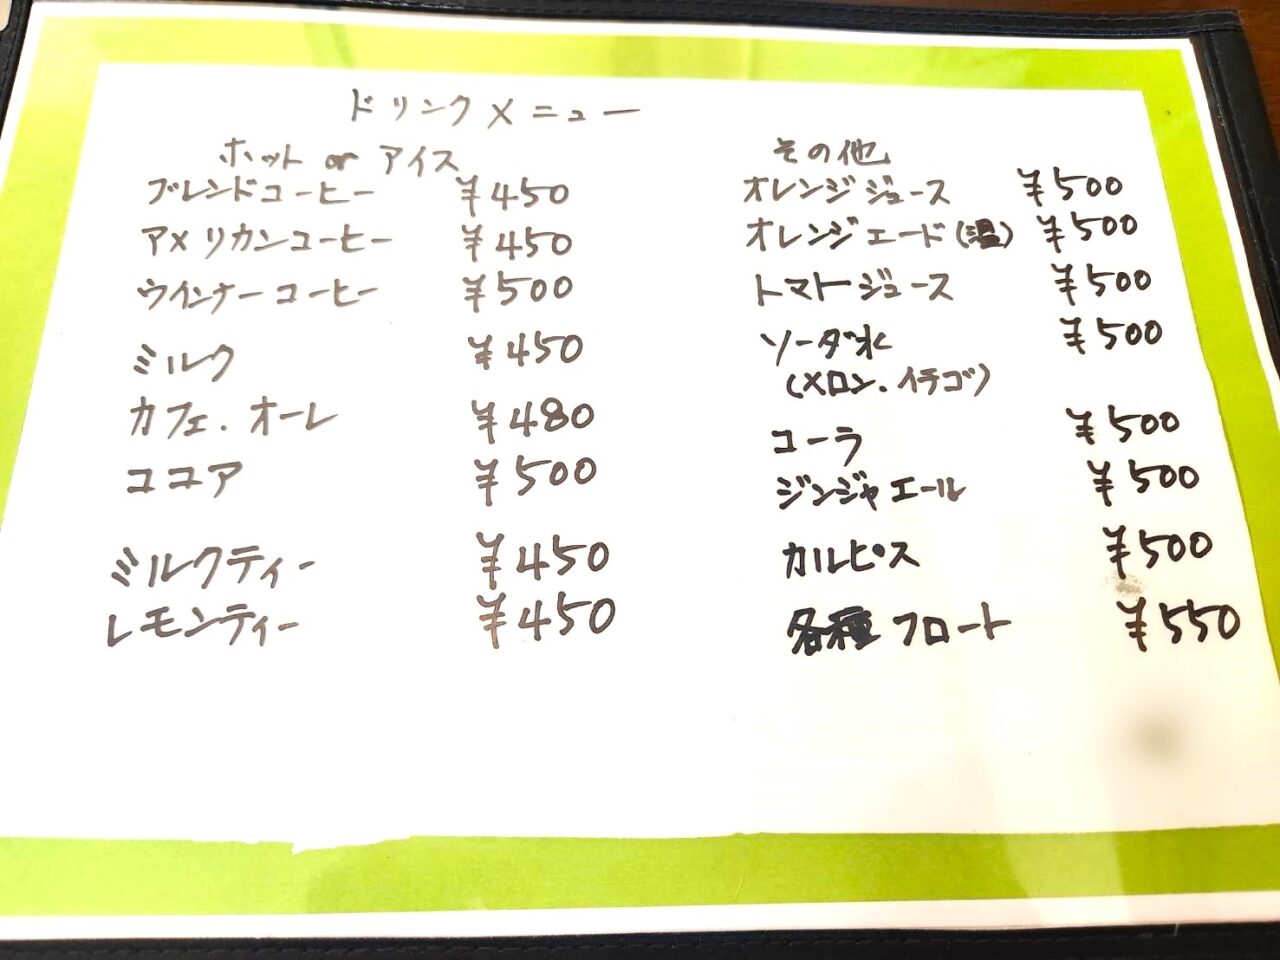 ドリンクメニュー
ホット or アイス
ブレンドコーヒー ¥450
アメリカンコーヒー ¥450
ウインナーコーヒー ¥500
ミルク ¥450
カフェ.オーレ ¥480
ココア ¥500
ミルクティー ¥450
レモンティー ¥450
その他
オレンジジュース ¥500
オレンジエード(温) ¥500
トマトジュース ¥500
ソーダ水 ¥500
(メロン.イチゴ)
コーラ ¥500
ジンジャエール ¥500
カルピス ¥500
各種フロート ¥550